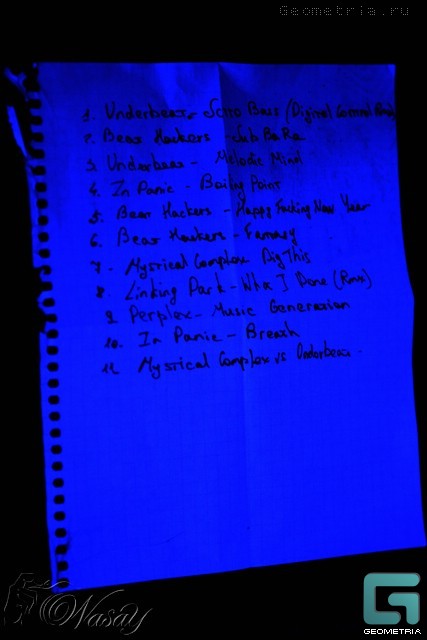 Geometria.ru
1. Underbeat - Sotto Bass (Digital Control
2. Beat Hackers - Sub Ba Ra
3. Underbeat - Melodic Mind
4. In Panic - Boiling Point
5. Beat Hackers - Happy Fucking New Year
6. Beat Hackers - Fantasy
7 - Mystical Complex Dig This
8. Linking Park - What I Done (Rmx)
9. Perplex - Music Generation
10. In Panic - Breath
11. Mystical Complex vs Underbeat.
Nasay
GEOMETRIA